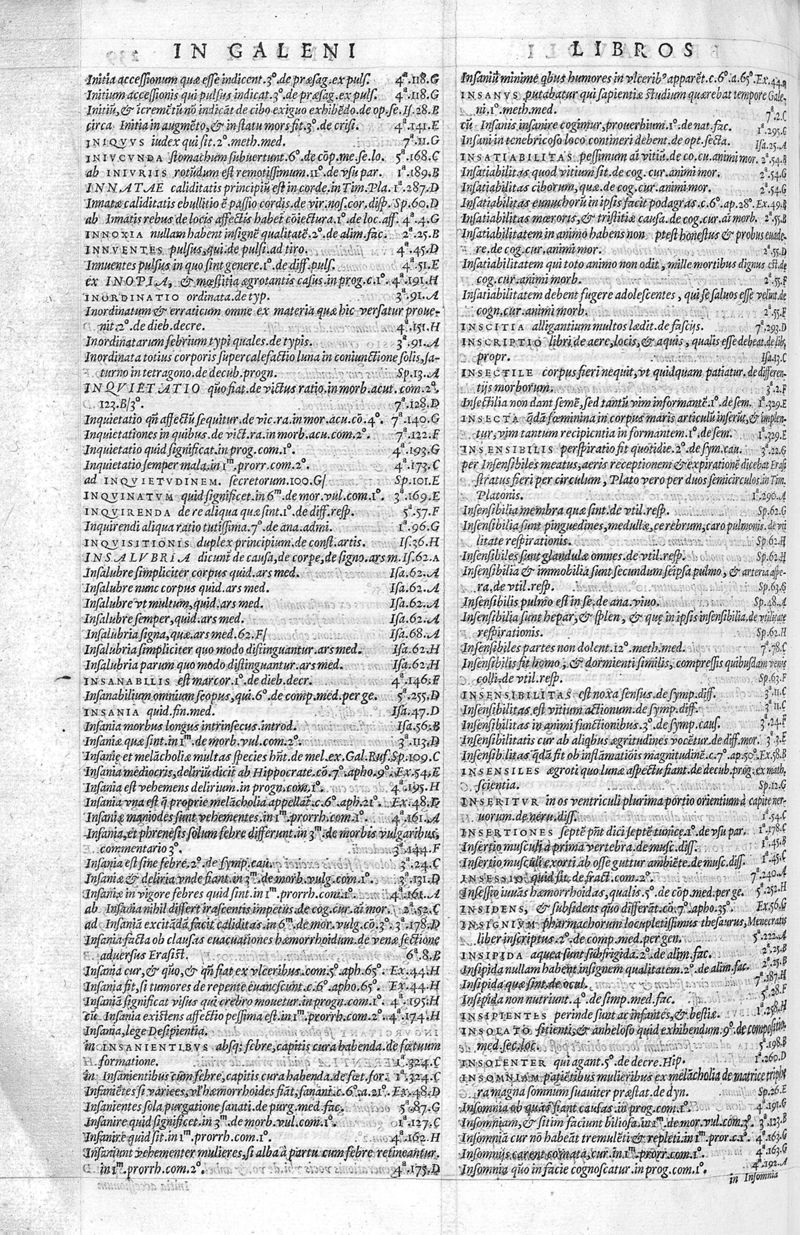 IN GALENI
Initia accessionum quæ esse indicent.3º.de præsag.ex puls. 4ª.118.G
Initium accessionis qui pulsus indicat.3º.de præsag.ex puls. 4ª.118.G
Initiū,& īcremētū nō indicāt de cibo exiguo exhibēdo.de op.se.Is.28.B
circa Initia in augmēto,& in statu mors fit.3º.de crisi. 4ª.141.E
INIQVVS iudex qui sit.2º.meth.med. 7ª.11.G
INIVCVNDA stomachum subuertunt.6º.de cōp.me.se.lo. 5ª.168.C
ab INIVRIIS rotūdum est remotissimum.11º.de vsu par. 1ª.189.B
INNATAE caliditatis principiū est in corde.in Tim.Pla. 1ª.287.D
Innatæ caliditatis ebullitio ē passio cordis.de vir.nos.cor.disp. Sp.60.D
ab Innatis rebus de locis affectis habet cōiectura.1º.de loc.aff. 4ª.4.G
INNOXIA nullam habent insignē qualitatē.2º.de alim.fac. 2ª.25.B
INNVENTES pulsus,qui.de puls.ad tiro. 4ª.45.D
Innuentes pulsus in quo sint genere.1º.de diff.puls. 4ª.51.E
ex INOPIA, & mœstitia ægrotantis casus.in prog.c.1º. 4ª.191.H
INORDINATIO ordinata.de typ. 3ª.91.A
Inordinatum & erraticum omne ex materia quæ hic versatur proue-
nit.2º.de dieb.decre. 4ª.151.H
Inordinatarum febrium typi quales.de typis. 3ª.91.A
Inordinata totius corporis supercalefactio luna in coniunctione solis,sa-
turno in tetragono.de decub.progn. Sp.13.A
INQVIETATIO quo fiat.de victus ratio.in morb.acut.com.2º.
123.B/3º. 7ª.128.D
Inquietatio qn̄ affectū sequitur.de vic.ra.in mor.acu.cō.4º. 7ª.140.G
Inquietationes in quibus.de vict.ra.in morb.acu.com.2º. 7ª.122.F
Inquietatio quid significat.in prog.com.1º. 4ª.193.G
Inquietatio semper mala.in 1ᵐ.prorr.com.2º. 4ª.173.C
ad INQVIETVDINEM. secretorum.100.G/ Sp.101.E
INQVINATVM quid significet.in 6ᵐ.de mor.vul.com.1º. 3ª.169.E
INQVIRENDA de re aliqua quæ sint.1º.de diff.resp. 5ª.57.F
Inquirendi aliqua ratio tutissima.7º.de ana.admi. 1ª.96.G
INQVISITIONIS duplex principium.de const.artis. Is.36.H
INSALVBRIA dicunt̄ de causa,de corpe,de signo.ars m.Is.62.A
Insalubre simpliciter corpus quid.ars med. Isa.62.A
Insalubre nunc corpus quid.ars med. Isa.62.A
Insalubre vt multum,quid.ars med. Isa.62.A
Insalubre semper,quid.ars med. Isa.62.A
Insalubria signa,quæ.ars med.62.F/ Isa.68.A
Insalubria simpliciter quo modo distinguantur.ars med. Isa.62.H
Insalubria parum quo modo distinguantur.ars med. Isa.62.H
INSANABILIS est marcor.1º.de dieb.decr. 4ª.146.E
Insanabilium omnium scopus,qui.6º.de comp.med.per ge. 5ª.255.D
INSANIA quid.fin.med. Isa.47.D
Insania morbus longus intrinsecus.introd. Isa.56.B
Insaniæ quæ sint.in 1ᵐ.de morb.vul.com.2º. 3ª.113.D
Insanię et melācholiæ multas species hn̄t.de mel.ex Gal.Ruf.Sp.109.C
Insania mediocris,deliriū dicit̄ ab Hippocrate.cō.7º.apho.9º.Ex.54.E
Insania est vehemens delirium.in progn.com.1º. 4ª.195.H
Insania vna est q̄ proprie melācholia appellat̄.c.6º.aph.21º. Ex.48.D
Insaniæ maniodes sunt vehementes.in 1ᵐ.prorrh.com.1º. 4ª.161.A
Insania,et phrenesis solum febre differunt.in 3ᵐ.de morbis vulgaribus,
commentario 3º. 3ª.144.F
Insania est sine febre.2º.de symp.cau. 3ª.24.C
Insaniæ & deliria vnde fiant.in 3ᵐ.de morb.vulg.com.1º. 3ª.131.D
Insaniæ in vigore febres quid sint.in 1ᵐ.prorrh.com.1º. 4ª.161.A
ab Insania nihil differt irascentis impetus.de cog.cur.ai mor. 2ª.52.C
ad Insaniā excitādā facit caliditas.in 6ᵐ.de mor.vulg.cō.3º.3ª.178.D
Insania facta ob clausas euacuationes hæmorrhoidum.de venæ sectione
aduersus Erasist. 6ª.8.B
Insania cur,& quo,& qn̄ fiat ex vlceribus.com.5º.aph.65º. Ex.44.H
Insania fit,si tumores de repente euanescunt.c.6º.apho.65º. Ex.44.H
Insaniā significat visus qui crebro mouetur.in progn.com.1º. 4ª.195.H
cū Insania existens affectio pessima est.in 1ᵐ.prorrh.com.2º.4ª.174.H
Insania,lege Desipientia.
in INSANIENTIBVS absq; febre,capitis cura habenda.de fœtuum
formatione. 1ª.324.C
in Insanientibus cum febre,capitis cura habenda.de fœt.for. 1ª.324.C
Insaniētes si varices,vel hæmorrhoides fiāt,sanant̄.c.6º.a.21º.Ex.48.D
Insanientes sola purgatione sanati.de purg.med.fac. 5ª.87.G
Insanire quid significet.in 3ᵐ.de morb.vul.com.1º. 1ª.127.C
Insanire quid sit.in 1ᵐ.prorrh.com.1º. 4ª.162.H
Insaniunt vehementer mulieres,si alba à partu cum febre retineantur.
in 1ᵐ.prorrh.com.2º. 4ª.175.D
LIBROS
Insaniū minime qbus humores in vlceribº apparēt.c.6º.a.65º.Ex.44.
INSANVS putabatur qui sapientiæ studium quærebat tempore Gale-
ni.1º.meth.med. 7ª.2.C
cū Insanis insanire cogimur,prouerbium.1º.de nat.fac. 1ª.295.G
Insani in tenebricoso loco contineri debent.de opt.secta. Isa.25.A
INSATIABILITAS pessimum ai vitiū.de co.cu.animi mor. 2ª.54.B
Insatiabilitas quod vitium sit.de cog.cur.animi mor. 2ª.54.G
Insatiabilitas ciborum,quæ.de cog.cur.animi mor. 2ª.54.G
Insatiabilitas eunuchorū in ipsis facit podagras.c.6º.ap.28º. Ex.49.B
Insatiabilitas mœroris,& tristitiæ causa.de cog.cur.ai morb. 2ª.55.B
Insatiabilitatem in animo habens non ptest honestus & probus euade-
re.de cog.cur.animi mor. 2ª.55.D
Insatiabilitatem qui toto animo non odit,mille mortibus dignus est.de
cog.cur.animi morb. 2ª.55.
Insatiabilitatem debent fugere adolescentes, qui se saluos esse velint.de
cogn.cur.animi morb. 2ª.55.
INSCITIA alligantium multos lædit.de fascijs. 7ª.293.D
INSCRIPTIO libri de aere,locis,& aquis, qualis esse debeat.de lib.
propr. Isa.13.C
INSECTILE corpus fieri nequit,vt quidquam patiatur.de differen-
tijs morborum. 3ª.2.F
Insectilia non dant semē,sed tantū vim informantē.1º.de sem. 1ª.329.E
INSECTA qdā fœminina in corpus maris articulū inserūt,& implen-
tur,vim tantum recipientia in formantem.1º.de sem. 1ª.329.E
INSENSIBILIS perspiratio fit quotidie.2º.de sym.cau. 3ª.22.G
per Insensibiles meatus,aeris receptionem & expirationē dicebat Erasi-
stratus fieri per circulum, Plato vero per duos semicirculos.in Tim.
Platonis. 1ª.290.A
Insensibilia membra quæ sint.de vtil.resp. Sp.62.G
Insensibilia sunt pinguedines,medullæ,cerebrum,caro pulmonis.de vti
litate respirationis. Sp.62.H
Insensibiles sunt glandulæ omnes.de vtil.resp. Sp.62.H
Insensibilia & immobilia sunt secundum seipsa pulmo, & arteria aspe-
ra,de vtil.resp. Sp.63.G
Insensibilis pulmo est in se.de ana.viuo. Sp.48.A
Insensibilia sunt hepar,& splen, & que in ipsis insensibilia.de vtilitate
respirationis. Sp.62.H
Insensibiles partes non dolent.12º.meth.med. 7ª.78.C
Insensibilis fit homo,& dormienti similis, compressis quibusdam venis
colli.de vtil.resp. Sp.63.F
INSENSIBILITAS est noxa sensus.de symp.diff. 3ª.11.C
Insensibilitas est vitium actionum.de symp.diff. 3ª.11.C
Insensibilitas in animi functionibus.3º.de symp.caus. 3ª.24.F
Insensibilitatis cur ab aliqbus ægritudines vocētur.de diff.mor. 3ª.3.E
Insensibilitas qdā fit ob inflāmatiōis magnitudinē.c.7º.ap.50º.Ex.58.B
INSENSILES ægroti quo lunæ aspectu fiant.de decub.prog.ex math.
scientia. Sp.12.G
INSERITVR in os ventriculi plurima portio orientium à capite ner-
uorum.de neru.diss. 1ª.54.C
INSERTIONES septē pn̄t dici septē tunicę.1º.de vsu par. 1ª.178.C
Insertio musculi à prima vertebra.de musc.diss. 1ª.45.C
Insertio musculi exorti ab osse guttur ambiēte.de musc.diss. 1ª.45.C
INSESSIO quid sit.de fract.com.2º. 7ª.240.A
Insessio iuuās hæmorrhoidas,qualis.5º.de cōp.med.per ge. 5ª.252.H
INSIDENS, & subsidens quo differāt.cō.7º.apho.35º. Ex.56.G
INSIGNIVM pharmachorum locupletissimus thesaurus,Menecratis
liber inscriptus.2º.de comp.med.per gen. 5ª.222.A
INSIPIDA aquea sunt subfrigida.2º.de alim.fac. 2ª.25.B
Insipida nullam habent insignem qualitatem.2º.de alim.fac. 2ª.25.B
Insipida quæ sint.de ocul. 7ª.187.H
Insipida non nutriunt.4º.de simp.med.fac. 5ª.28.F
INSIPIENTES perinde sunt ac infantes,& bestiæ. 1ª.258.H
INSOLATO sitienti,& anheloso quid exhibendum.9º.de compositio.
med.sec.loc. 5ª.198.B
INSOLENTER qui agant.5º.de decre.Hip. 1ª.260.D
INSOMNIAM patiētibus mulieribus ex melācholia de matrice triphe
ra magna somnum suauiter præstat.de dyn. Sp.26.E
Insomnia ob quas fiant causas.in prog.com.1º. 4ª.191.G
Insomniam,& sitim faciunt biliosa.in 1ᵐ.de mor.vul.com.3º. 3ª.123.B
Insomnia cur nō habeāt tremuleti & repleti.in 1ᵐ.pror.c.1º. 4ª.163.G
Insomnijs carent comata,cur.in 1ᵐ.prorr.com.1º. 4ª.163.G
Insomnia quo in facie cognoscatur.in prog.com.1º. 4ª.192.A
in Insomnia